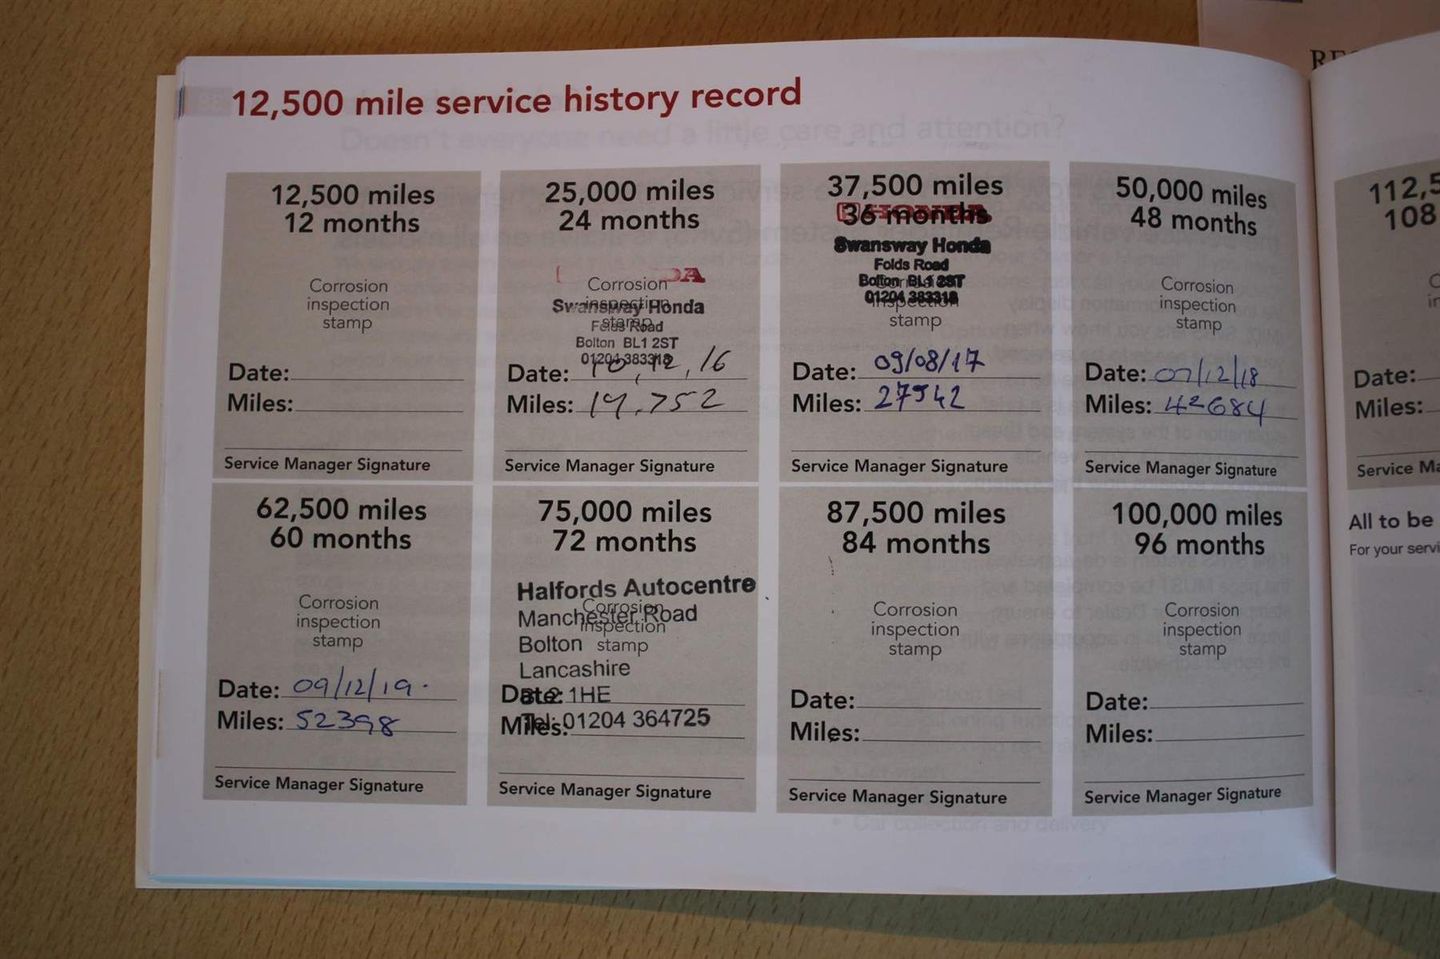 12,500 mile service history record
12,500 miles
12 months
Corrosion
inspection
stamp
Date:
Miles:
Service Manager Signature
25,000 miles
24 months
Corrosion
inspection
stamp
Swansway Honda
Folds Road
Bolton BL1 2ST
01204 383318
Date: 10,12,16
Miles: 19,752
Service Manager Signature
37,500 miles
36 months
HONDA
Swansway Honda
Folds Road
Bolton BL1 2ST
01204 383318
inspection
stamp
Date: 09/08/17
Miles: 27542
Service Manager Signature
50,000 miles
48 months
Corrosion
inspection
stamp
Date: 07/12/18
Miles: 42684
Service Manager Signature
62,500 miles
60 months
Corrosion
inspection
stamp
Date: 09/12/19.
Miles: 52398
Service Manager Signature
75,000 miles
72 months
Corrosion
inspection
stamp
Halfords Autocentre
Manchester Road
Bolton
Lancashire
BL2 1HE
Tel: 01204 364725
Date:
Miles:
Service Manager Signature
87,500 miles
84 months
Corrosion
inspection
stamp
Date:
Miles:
Service Manager Signature
100,000 miles
96 months
Corrosion
inspection
stamp
Date:
Miles:
Service Manager Signature
112,5
108
Date:
Miles:
Service Ma
All to be
For your servi